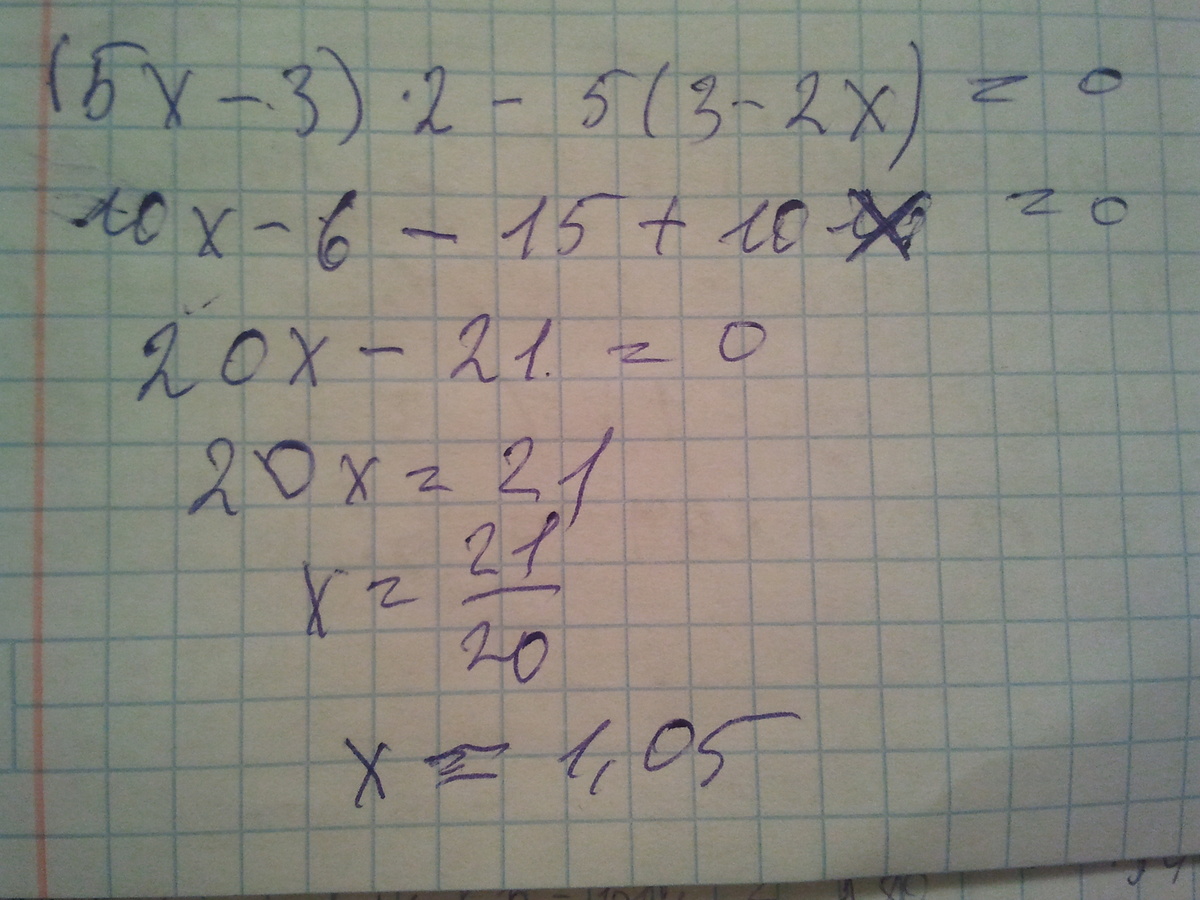 (5x - 3) · 2 - 5(3 - 2x) = 0
10x - 6 - 15 + 10x = 0
20x - 21 = 0
20x = 21
x = 21/20
x = 1,05